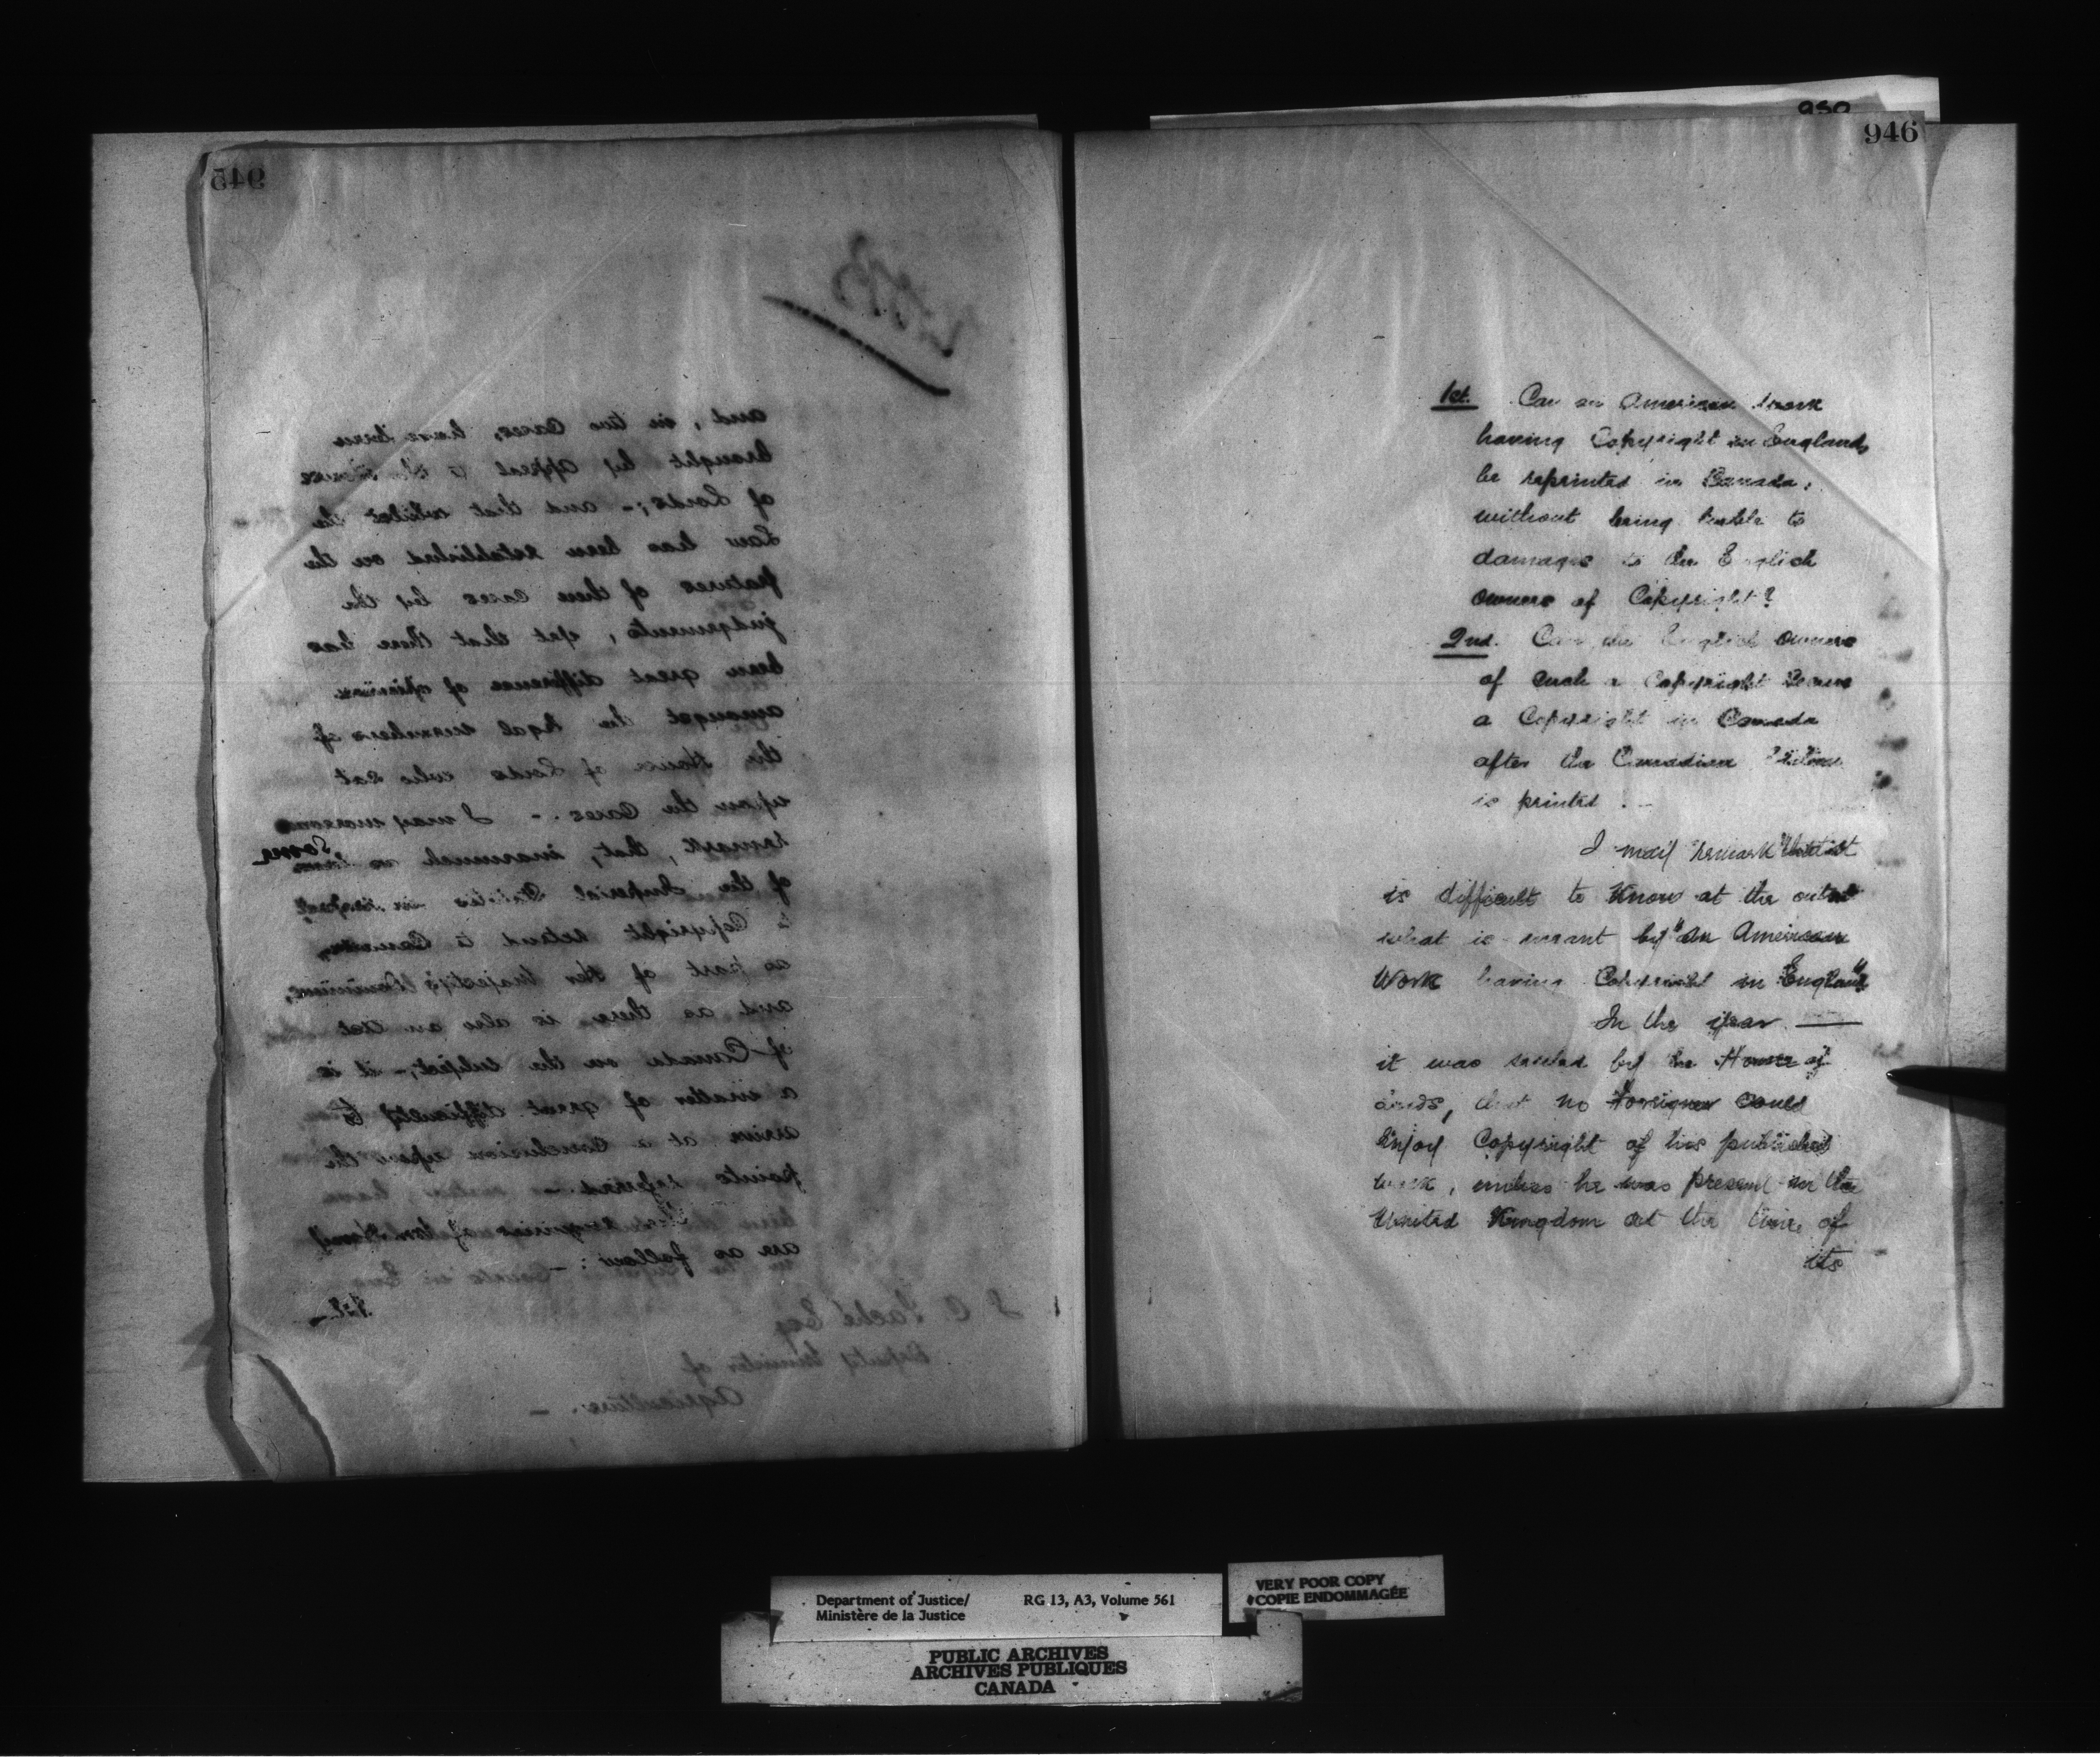 945
and, in two Cases, have been
brought by appeal to the House
of Lords; - and that whilst the
Law has been established on the
features of these Cases by the
judgments, yet that there has
been great difference of opinion
amongst the legal members of
the House of Lords who sat
upon the Cases. - I may moreover
remark, that, inasmuch as Some
of the Imperial Statutes in respect
to Copyright extend to Canada,
as part of Her Majesty's Dominions,
and as there is also an Act
of Canada on the subject; - it is
a matter of great difficulty to
arrive at a Conclusion upon the
points referred. -
The enquiries of
are as follow: -
1st. -
J. C. Taché Esq
Deputy Minister of
Agriculture. -
950
946
1st. Can an American work
having Copyright in England,
be reprinted in Canada,
without being liable to
damages to the English
owners of Copyright?
2nd. Can the English owners
of such a Copyright secure
a Copyright in Canada
after the Canadian Edition
is printed? -
I may remark that it
is difficult to know at the outset
what is meant by "an American
Work having Copyright in England"
In the year ——
it was settled by the House of
Lords, that no Foreigner could
enjoy Copyright of his published
work, unless he was present in the
United Kingdom at the time of
its
Department of Justice/
Ministère de la Justice
RG 13, A3, Volume 561
VERY POOR COPY
COPIE ENDOMMAGÉE
PUBLIC ARCHIVES
ARCHIVES PUBLIQUES
CANADA